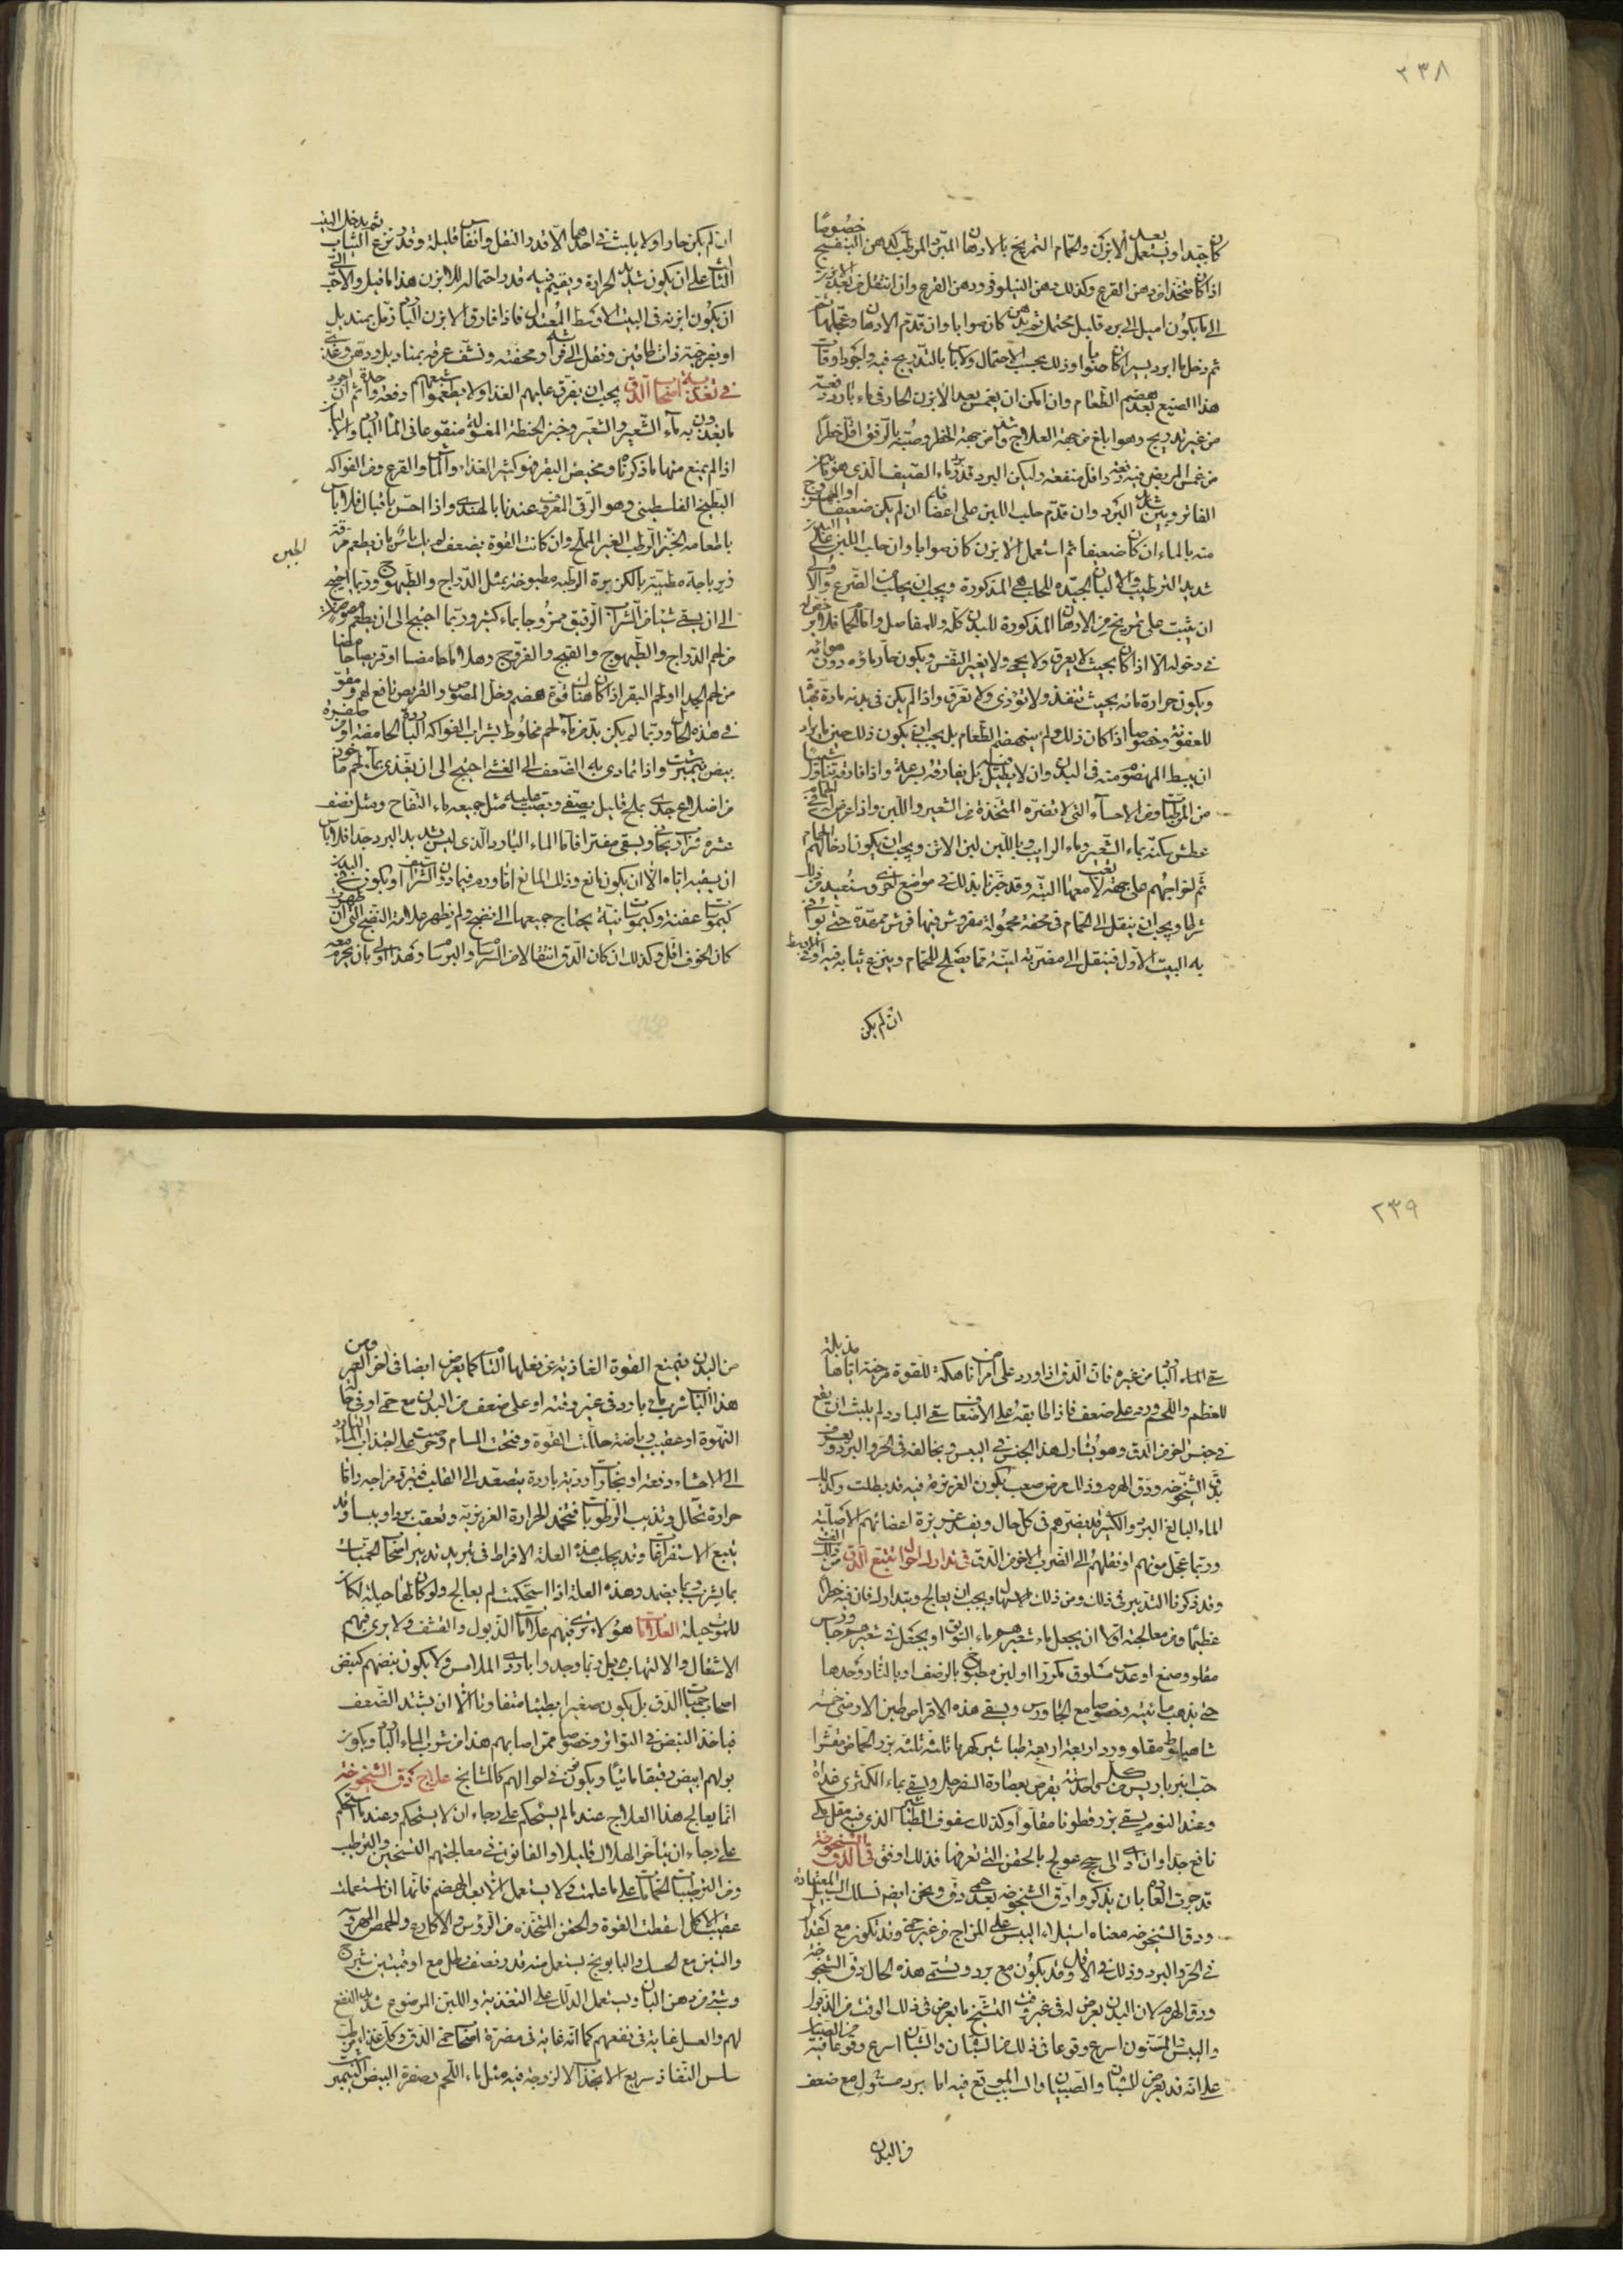 ٢٣٨
خصوصًا
كان جيدا ويستعمل بعد الابزن والحمام التمريخ بالادهان المبردة المرطبة كدهن البنفسج
اذا كان متخذا من دهن القرع وكذلك دهن النيلوفر ودهن القرع وان انتقل من بعد الابزن
الى ما يكون اميل الى برد قليل محتمل ثم دهن كان صوابا وان قدم الادهان وعجلها
ثم دخل ما ابرد يسيرا كان صوابا وذلك بحسب الاحتمال ولا بالتدريج فيه واجود اوقات
هذا الصنيع بعد هضم الطعام وان امكن ان يغمس بعد الابزن الحار في ماء بارد دفعة
من غير تدريج وهو ابلغ من جهة العلاج واشد من جهة الخطر وصبه بالرفق اقل خطرا
من غمس المريض فيه دفعة واقل منفعة وليكن البرد قدر ماء الصيف الذي هو
الفاتر وبين شديد البرد وان قدم حلب اللبن على اعضائه ان لم يكن ضعيفا او الممزوج
منه بالماء ان كان ضعيفا ثم استعمل الابزن كان صوابا وان حلب اللبن على البدن
شديد الترطيب والالبان الجيدة للحلب هي المذكورة ويجب ان يحلب من الضرع والا
ان يثبت على تمريخ من الادهان المذكورة للبدن كله وللمفاصل واما الحمام فلا
في دخوله الا اذا كان بحيث لا يعرق ولا يحمي ولا يغير النفس ويكون حار ماؤه دون هوائه
ويكون حرارة مائه بحيث تنفذ ولا تؤذي ولا تعرق واذا لم يكن في بدنه مادة
للعفونة وخصوصا اذا كان ذلك ولم ينهضم الطعام بل يجب ان يكون ذلك حين
ان يبسط المهضوم منه في البدن وان لا يطيل بل يفارقه بسرعة واذا فارقه تناول
من المرطبات ومن الاحساء التي لا تضره المتخذة من الشعير واللبن واذا عرض في الحمام
عطش سكنه بماء الشعير وماء الرايب وباللبن لبن الاتن ويجب ان يكون ادخالهم الحمام
ثم اخراجهم على جهة لا تعب معها البتة وقد خبرنا بذلك في مواضع اخرى وسنعيد من ذلك
ويجب ان ينقل الى الحمام في محفة محمولة مفروش فيها فرش ممهدة حتى يوافي
به البيت الاول فينقل الى مضربة لينة مما يصلح للحمام وينزع ثيابه فيه او في الاوسط
ان لم يكن
ان لم يكن حارا ولا يلبث في احدهما الا قدر النقل وانفاسا قليلة وقدر نزع الثياب ثم يدخل البيت
الثالث على ان لا يكون شديد الحرارة ويقيم فيه قدر احتماله للابزن هذا ما قيل والاحب الي
ان يكون ابزنه في البيت الاوسط المعتدل فاذا فارق الابزن البارد زمل بمنديل
او بفرجية ذات طاقين ونقل الى فراشه او محفته ونشف عرقه بمناديل ودهن وغذي
في تغذية اصحاب الدق يجب ان يفرق عليهم الغذاء ولا يطعموا شبعهم دفعة واحدة ثم ان اجود
ما يغذون به ماء الشعير والشعير وخبز الحنطة المغسولة منقوعا في الماء البارد والالبان
اذا لم يمنع منها ما ذكرناه ومخيض البقر فهو كثير الغذاء والماش والقرع ومن الفواكه
البطيخ الفلسطيني وهو الرقي المعروف عندنا بالهندي واذا احس باقبال فلا باس
باطعامه الخبز الرطب الغير المملح وان كانت القوة بضعف فلا بك باس بان يطعم مرقة
زيرباجة مطيبة بالكزبرة الرطبة مطبوخة بمثل الدراج والطيهوج وربما احتيج
الى ان يسقى شيئا من الشراب الرقيق ممزوجا بماء كثير وربما احتيج الى ان يطعم مصوصا
من لحم الدراج والطيهوج والقبج والفروج وهلاما حامضا او قريصا حامضا
من لحم الجدا او لحم البقر اذا كان هناك قوة هضم وخل المصوص والقريص نافع لهم ومقو
في هذه الحال وربما لم يكن بد من ماء لحم مخلوط بشراب الفواكه الباردة الحامضة او من صفرة
بيض نيمبرشت واذا تمادى به الضعف الى الغشي احتيج الى ان يغذى بماء لحم ماخوذ
من اضلاع جدي بملح قليل يصفى ويصب عليه مثل جميعه ماء التفاح ومثل نصف
عشره شرابا ريحانيا ويسقى مفترا فاما الماء البارد الذي ليس شديد البرد جدا فلا باس
ان يسقيه اياه الا ان يكون مانع وذلك المانع اما ورم فيما دون الشراسيف او يكون في البدن
كيموسات عفنة وكيموسات نية يحتاج جميعها الى نضج ولم يظهر علامة النضج التي ان ظهرت
كان الخوف اقل وكذلك ان كان الدق انتقالا من السرسام والبرسام وهذا اولى بان يحرم معه
الجبن
٢٣٩
سقي الماء البارد من غيره فان الدق اذا ورد على امراض ناهكة للقوة مرضية اياها مذبلة
للعظم واللحم ورد على ضعف فاذا طابقه على الاضعاف سقي البارد لم يلبث ان يقع
في جنس اخر من الدق وهو يشارك هذا الجنس في اليبس ويخالفه في الحر والبرد ويعرف
بدق الشيخوخة ودق الهرم وذلك مرض صعب يكون الغريزية فيه قد بطلت وكذلك
الماء البالغ البرد والكثير قد يضرهم في كل حال ويفسد غريزة اعضائهم الاصلية
وربما عجل موتهم او نقلهم الى الضرب الاخر من الدق في تدارك احوال تتبع الدق من ذلك الغشي
وقد ذكرنا التدبير في ذلك ومن ذلك الاسهال ويجب ان يعالج ويتدارك فان فيه خطرا
عظيما ومن معالجته اولا ان يجعل ماء شعيرهم ماء السويق او يجعل في شعيرهم جاورس
مقلو وصمغ او عدس مسلوق مكررا او لبن مطبوخ بالرضف او بالنار وحدها
حتى يذهب مائيته وخصوصا مع الجاورس ويسقى هذه الاقراص طين الارمني خمسة
شاهبلوط مقلو ورد اربعة اربعة طباشير كهربا ثلاثة ثلاثة بزر الحماض مقشرا
حب انبرباريس من كل واحد ستة يقرص بعصارة السفرجل ويسقى بماء الكمثرى غداة
وعند النوم يسقى بزر قطونا مقلوا وكذلك سفوف الطباشير الذي فيه مقل مكي
نافع جدا وان ادى الى سحج عولج بالحقن التي تعرفها فذلك اوفق في دق الشيخوخة
قد جرت العادة بان يذكروا دق الشيخوخة بعد حمى دق ونحن ايضم نسلك السبيل المعتادة
ودق الشيخوخة معناه استيلاء اليبس على المزاج من غير حمى وقد تكون مع اعتدال
في الحر والبرد وذلك في الاقل وقد يكون مع برد وتسمى هذه الحال دق الشيخوخة
ودق الهرم لان البدن يعرض له في غير وقت التشيخ ما يعرض في ذلك الوقت من الذبول
واليبس المسنون اسرع وقوعا في ذلك من الشبان والشبان اسرع وقوعا فيه من الصبيان
على انه قد يعرض للشبان والصبيان والسبب الموقع فيه اما برد مستول مع ضعف
من البدن
من البدن فيمنع القوة الغاذية عن فعلها التام كما يعرض ايضا في اخر العمر ومن
هذا الباب شرب ماء بارد في غير وقته او على ضعف من البدن مع حمى او في حال
النهوة او عقيب رياضة حللت القوة وفتحت المسام وحرصت على اجتذاب الماء البارد
الى الاحشاء دفعة او بخارات ردية باردة يتصعد الى القلب فتبرد مزاجه واما
حرارة تحلل وتذيب الرطوبات فتخمد الحرارة الغريزية وتعقب بردا ويبسا وقد
يتبع الاستفراغات وقد يجلب هذه العلة الافراط في تبريد تدبير اصحاب الحميات
بما يشرب وبما يضمد وهذه العلة اذا استحكمت لم يعالج ولو كان لها حيلة لكان
للموت حيلة العلامات هؤلاء ترى فيهم علامات الذبول والقشف ولا يرى فيهم
الاشتعال والالتهاب بل ربما وجدوا باردي الملامس ولا يكون نبضهم كنبض
اصحاب حميات الدق بل يكون صغيرا بطيئا متفاوتا الا ان يشتد الضعف
فياخذ النبض في التواتر وخصوصا ممن اصابهم هذا من شرب الماء البارد ويكون
بولهم ابيض رقيقا مائيا ويكونون في احوالهم كالمشايخ علاج دق الشيخوخة
انما يعالج هذا العلاج عند ما لم يستحكم على رجاء ان لا يستحكم وعند ما استحكم
على رجاء ان يتاخر الهلاك قليلا والقانون في معالجتهم التسخين والترطيب
ومن المرطبات الحمامات على ما علمت ولا يستعمل الا بعد الهضم فانها ان استعملت
عقيب الاكل اسقطت القوة والحقن المتخذة من الرؤس والاكارع والحمص المهري
والتين مع الحسك والبابونج يستعمل منه قدر نصف رطل مع اوقيتين شيرج
وشيء من دهن البان ويستعمل الدلك على التغذية واللبن المرضوع شديد النفع
لهم والعسل غاية في نفعهم كما انه غاية في مضرة اصحاب حمى الدق وكل غذاء مرطب
سلس النفاذ سريع الانجذاب لا لزوجة فيه مثل ماء اللحم وصفرة البيض النيمبرشت